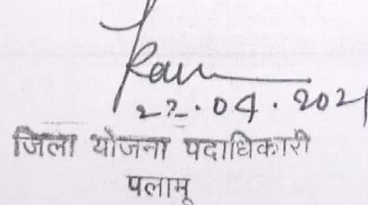 22.04.202
जिला योजना पदाधिकारी
पलामू